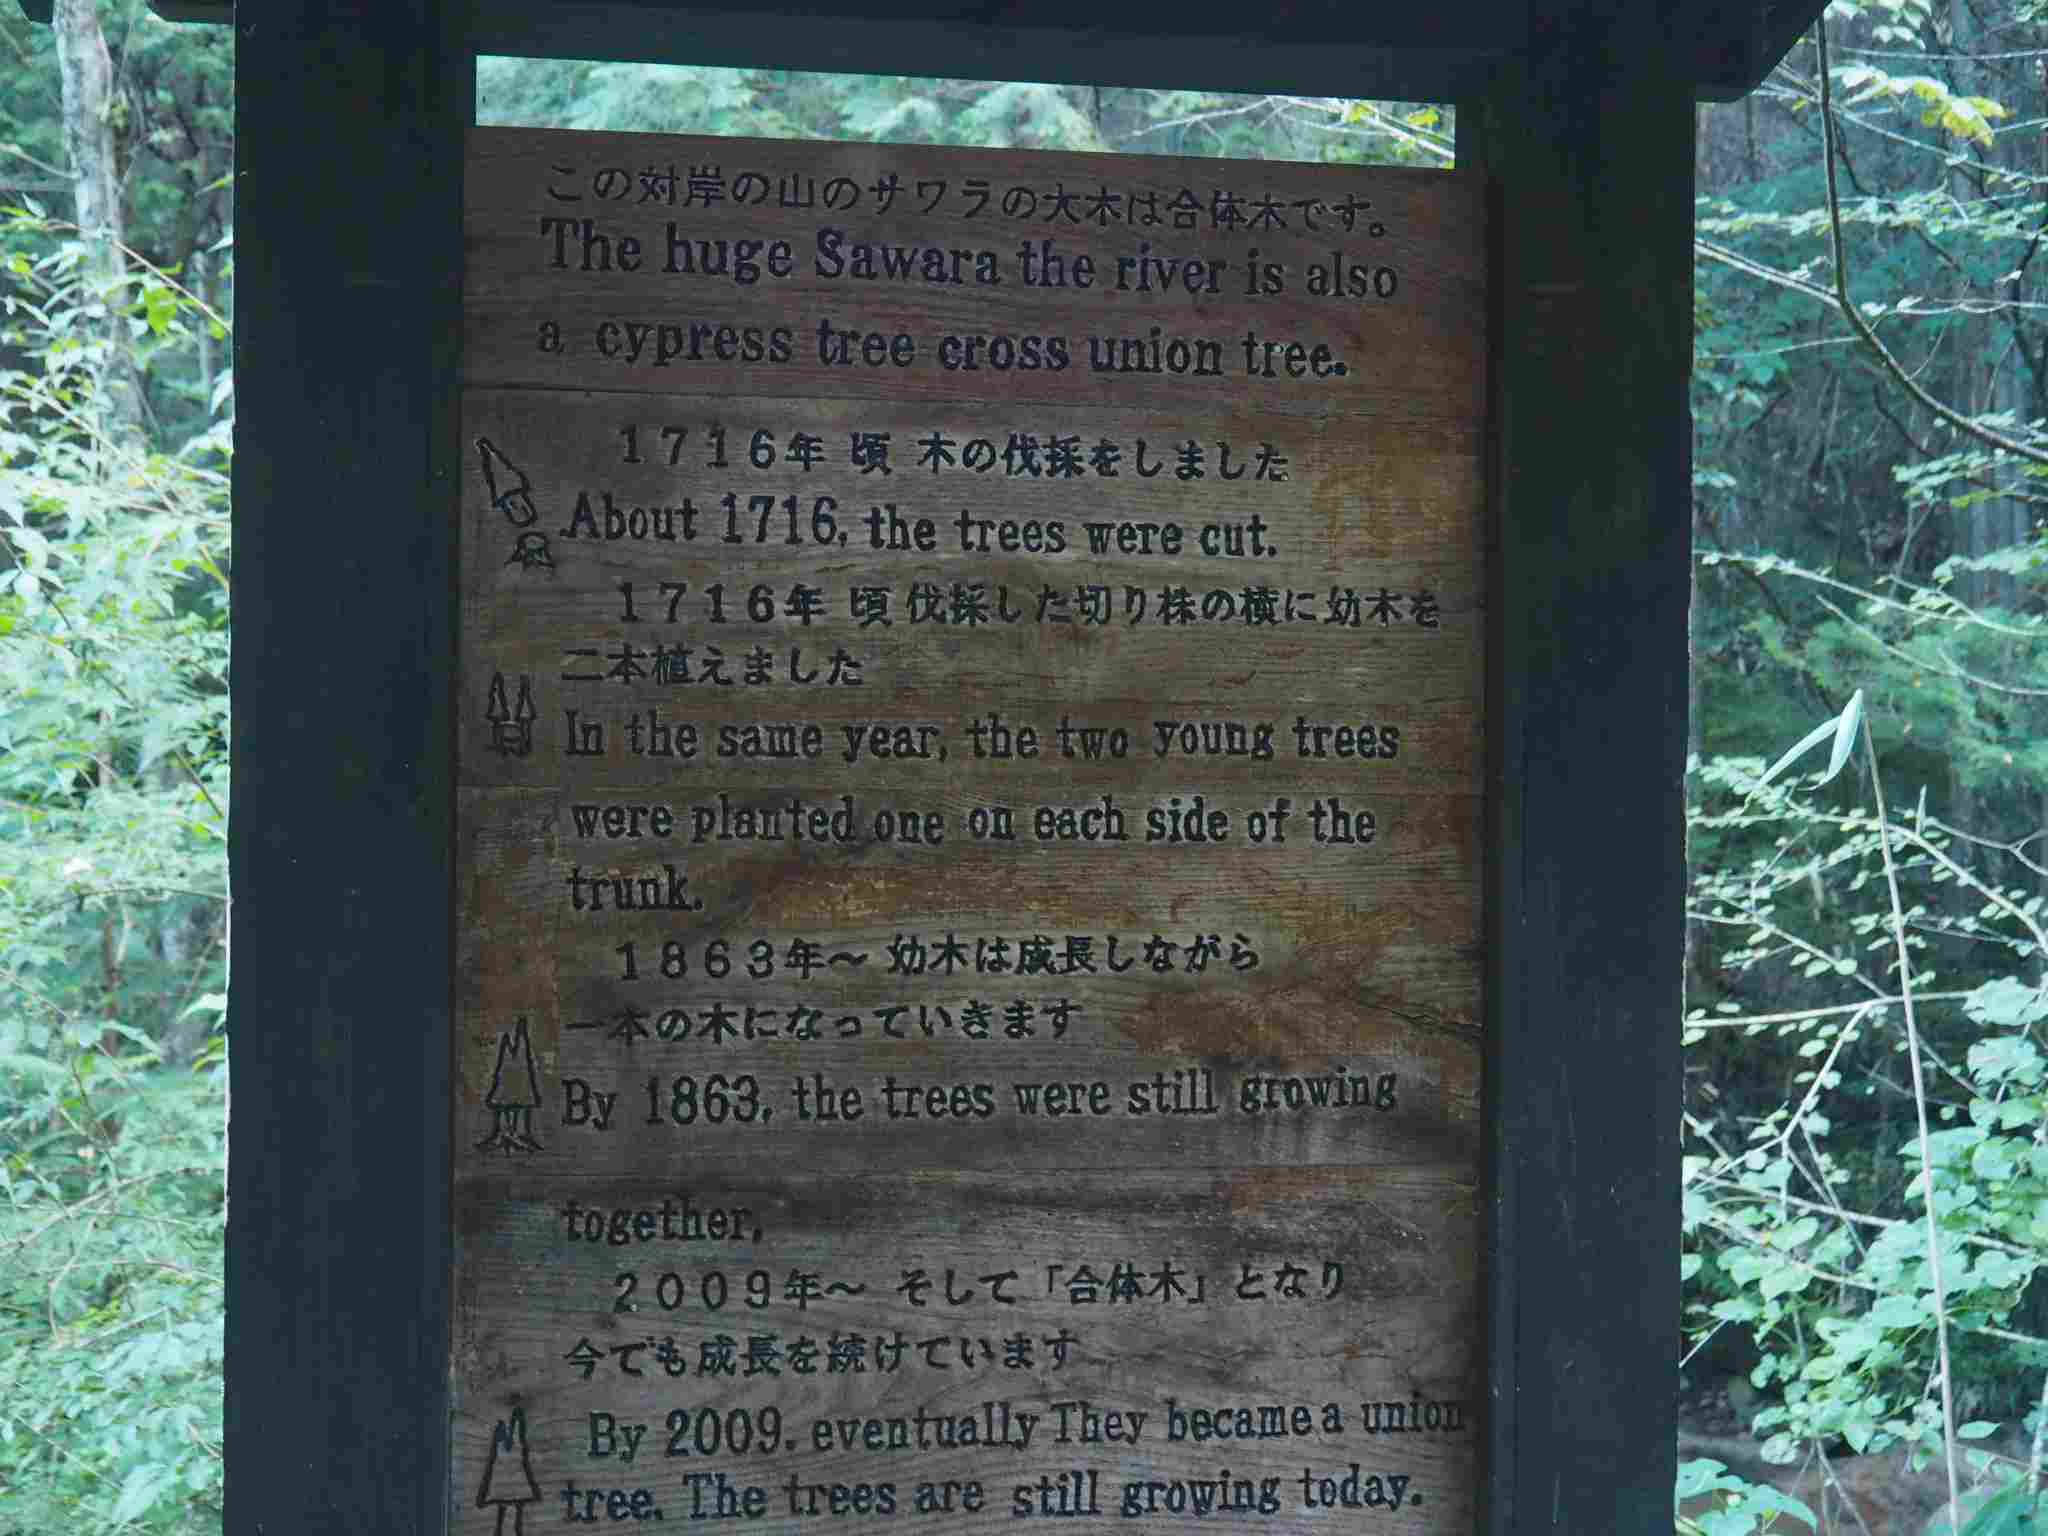 この対岸の山のサワラの大木は合体木です。
The huge Sawara the river is also
a cypress tree cross union tree.
1716年 頃 木の伐採をしました
About 1716, the trees were cut.
1716年 頃 伐採した切り株の横に幼木を
二本植えました
In the same year, the two young trees
were planted one on each side of the
trunk.
1863年～ 幼木は成長しながら
一本の木になっていきます
By 1863, the trees were still growing
together.
2009年～ そして「合体木」となり
今でも成長を続けています
By 2009, eventually They became a union
tree. The trees are still growing today.